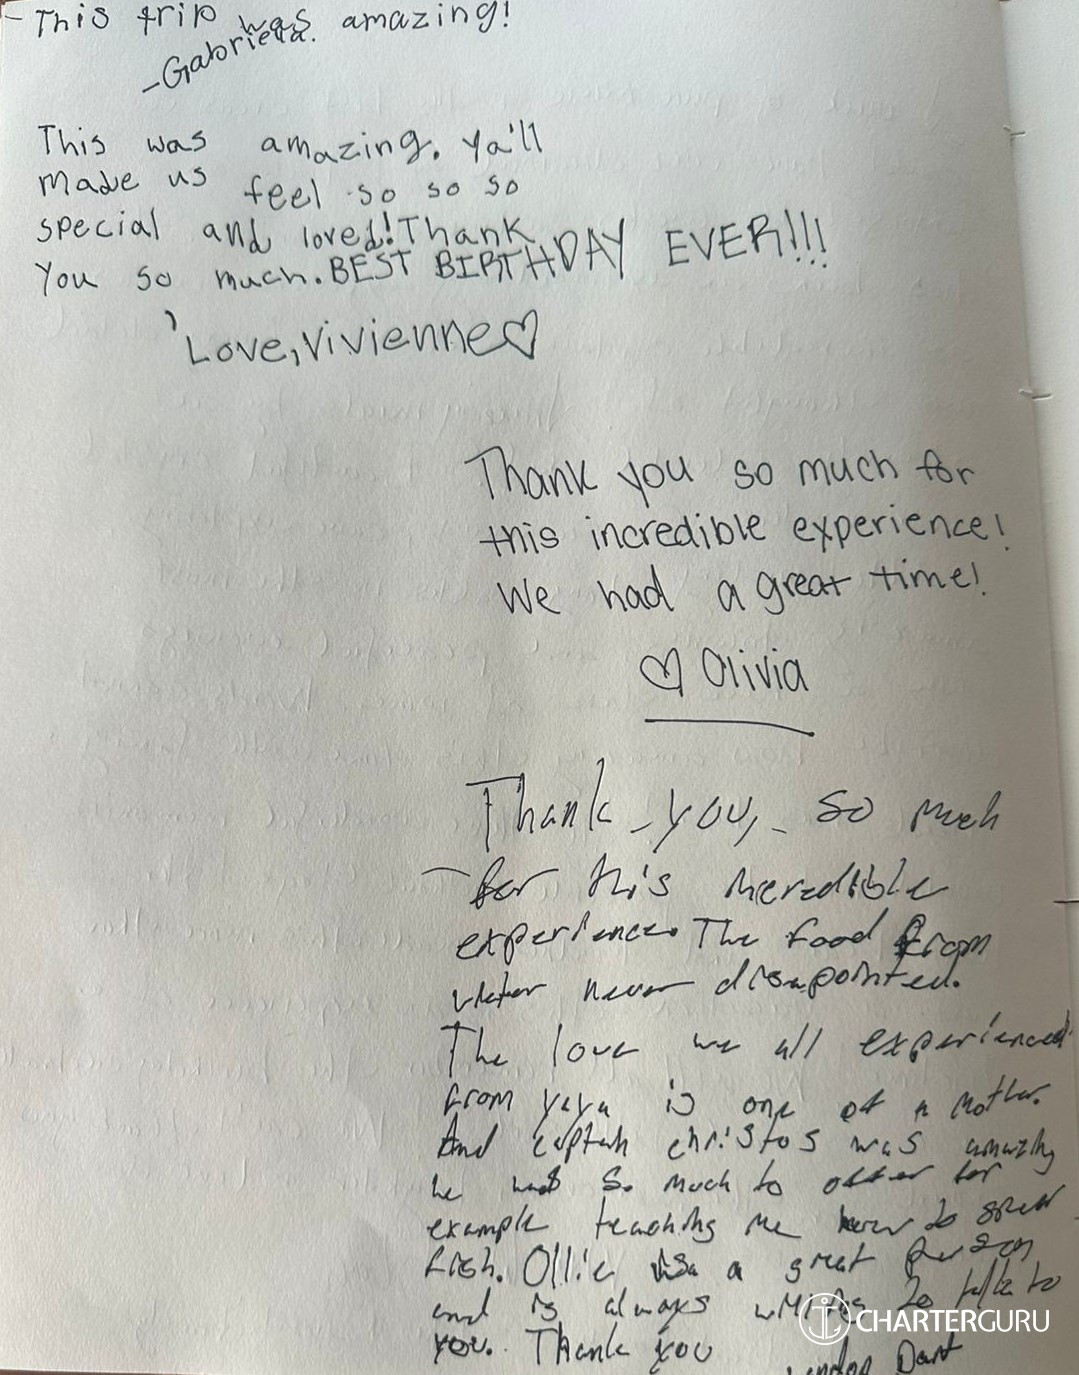 - This trip was amazing!
-Gabriela.
This was amazing. Ya'll
made us feel so so so
special and loved! Thank
You so much. BEST BIRTHDAY EVER!!!
Love, Vivienne♡
Thank you so much for
this incredible experience!
We had a great time!
♡ Olivia
Thank you, so much
for this incredible
experience. The food from
victor never disapointed.
The love we all experienced
from yaya is one of a mother.
And captain christos was amazing
he had so much to offer for
example teaching me how to spear
fish. Ollie is a great person
and is always willing to talk to
you. Thank you
Dart
CHARTERGURU